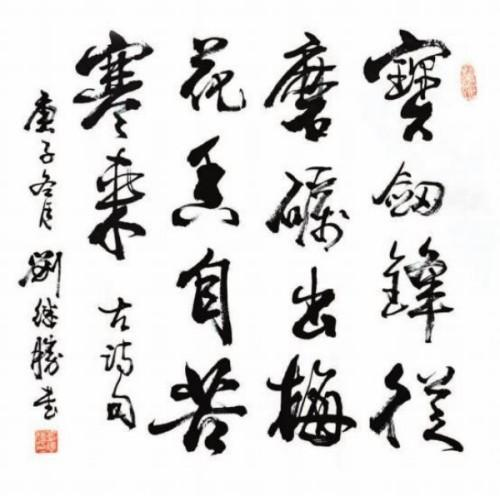 寶劍鋒從
磨礪出梅
花香自苦
寒來 古詩句
庚子冬月 劉繼勝書